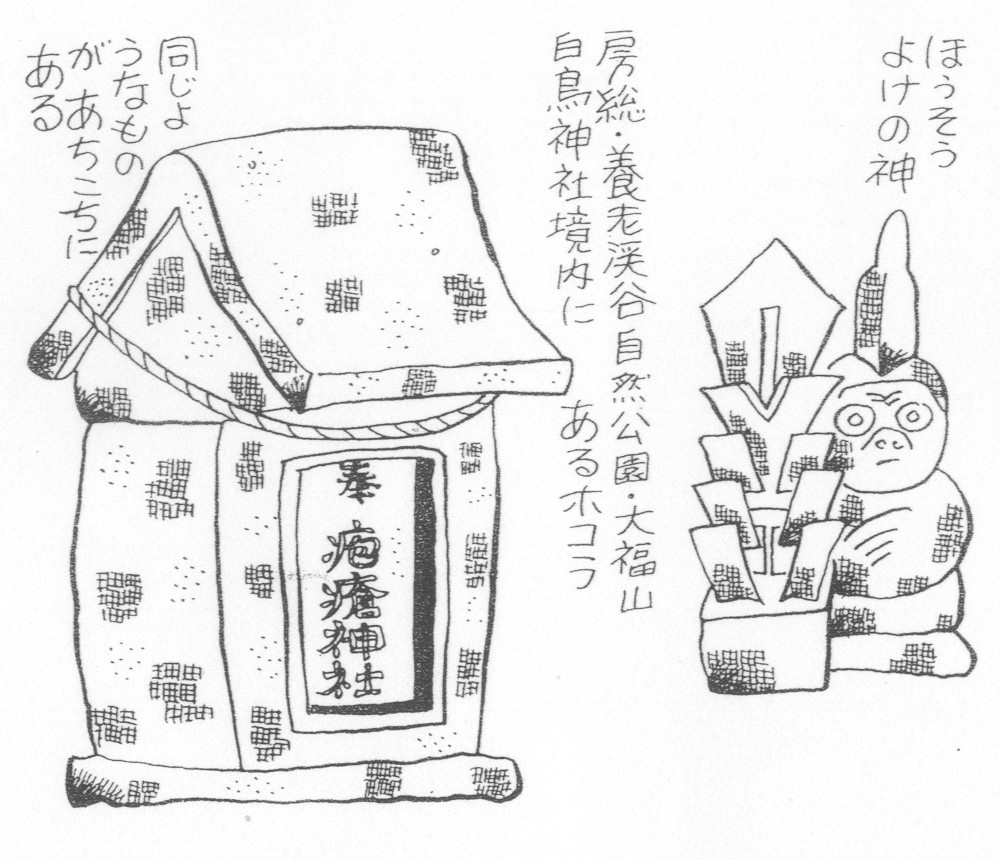 ほうそう
よけの神
房総・養老渓谷自然公園・大福山
白鳥神社境内に
あるホコラ
同じよ
うなもの
があちこちに
ある
奉 疱瘡神社